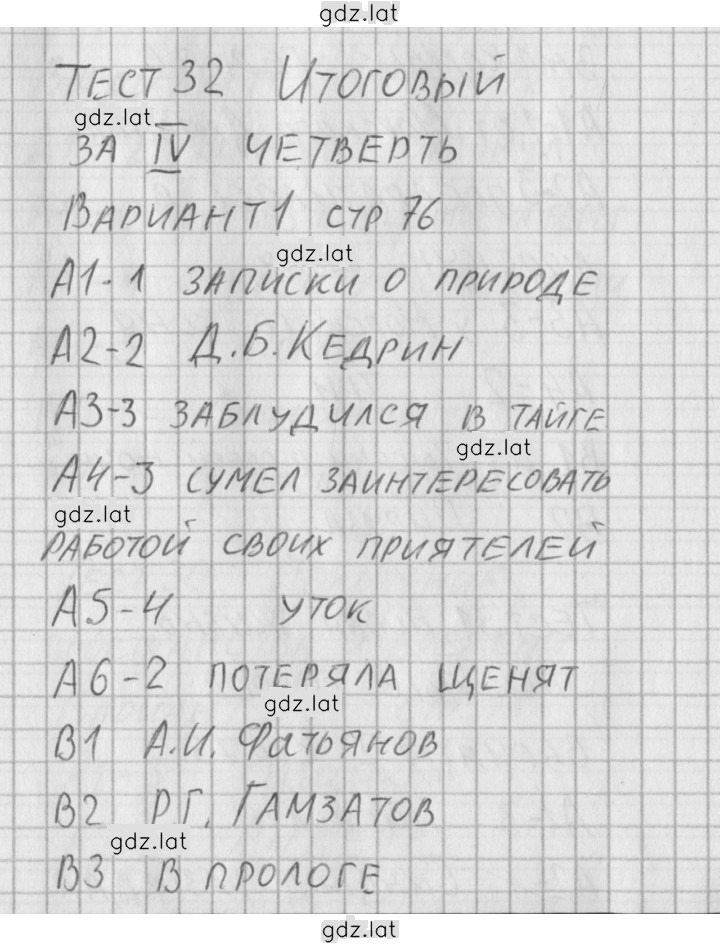 gdz.lat
ТЕСТ 32 ИТОГОВЫЙ
gdz.lat
ЗА IV ЧЕТВЕРТЬ
ВАРИАНТ 1 СТР 76
gdz.lat
А1-1 ЗАПИСКИ О ПРИРОДЕ
А2-2 Д.Б.КЕДРИН
А3-3 ЗАБЛУДИЛСЯ В ТАЙГЕ
gdz.lat
А4-3 СУМЕЛ ЗАИНТЕРЕСОВАТЬ
gdz.lat
РАБОТОЙ СВОИХ ПРИЯТЕЛЕЙ
А5-4 УТОК
А6-2 ПОТЕРЯЛА ЩЕНЯТ
gdz.lat
В1 А.И. ФАТЬЯНОВ
В2 Р.Г. ГАМЗАТОВ
gdz.lat
В3 В ПРОЛОГЕ
gdz.lat